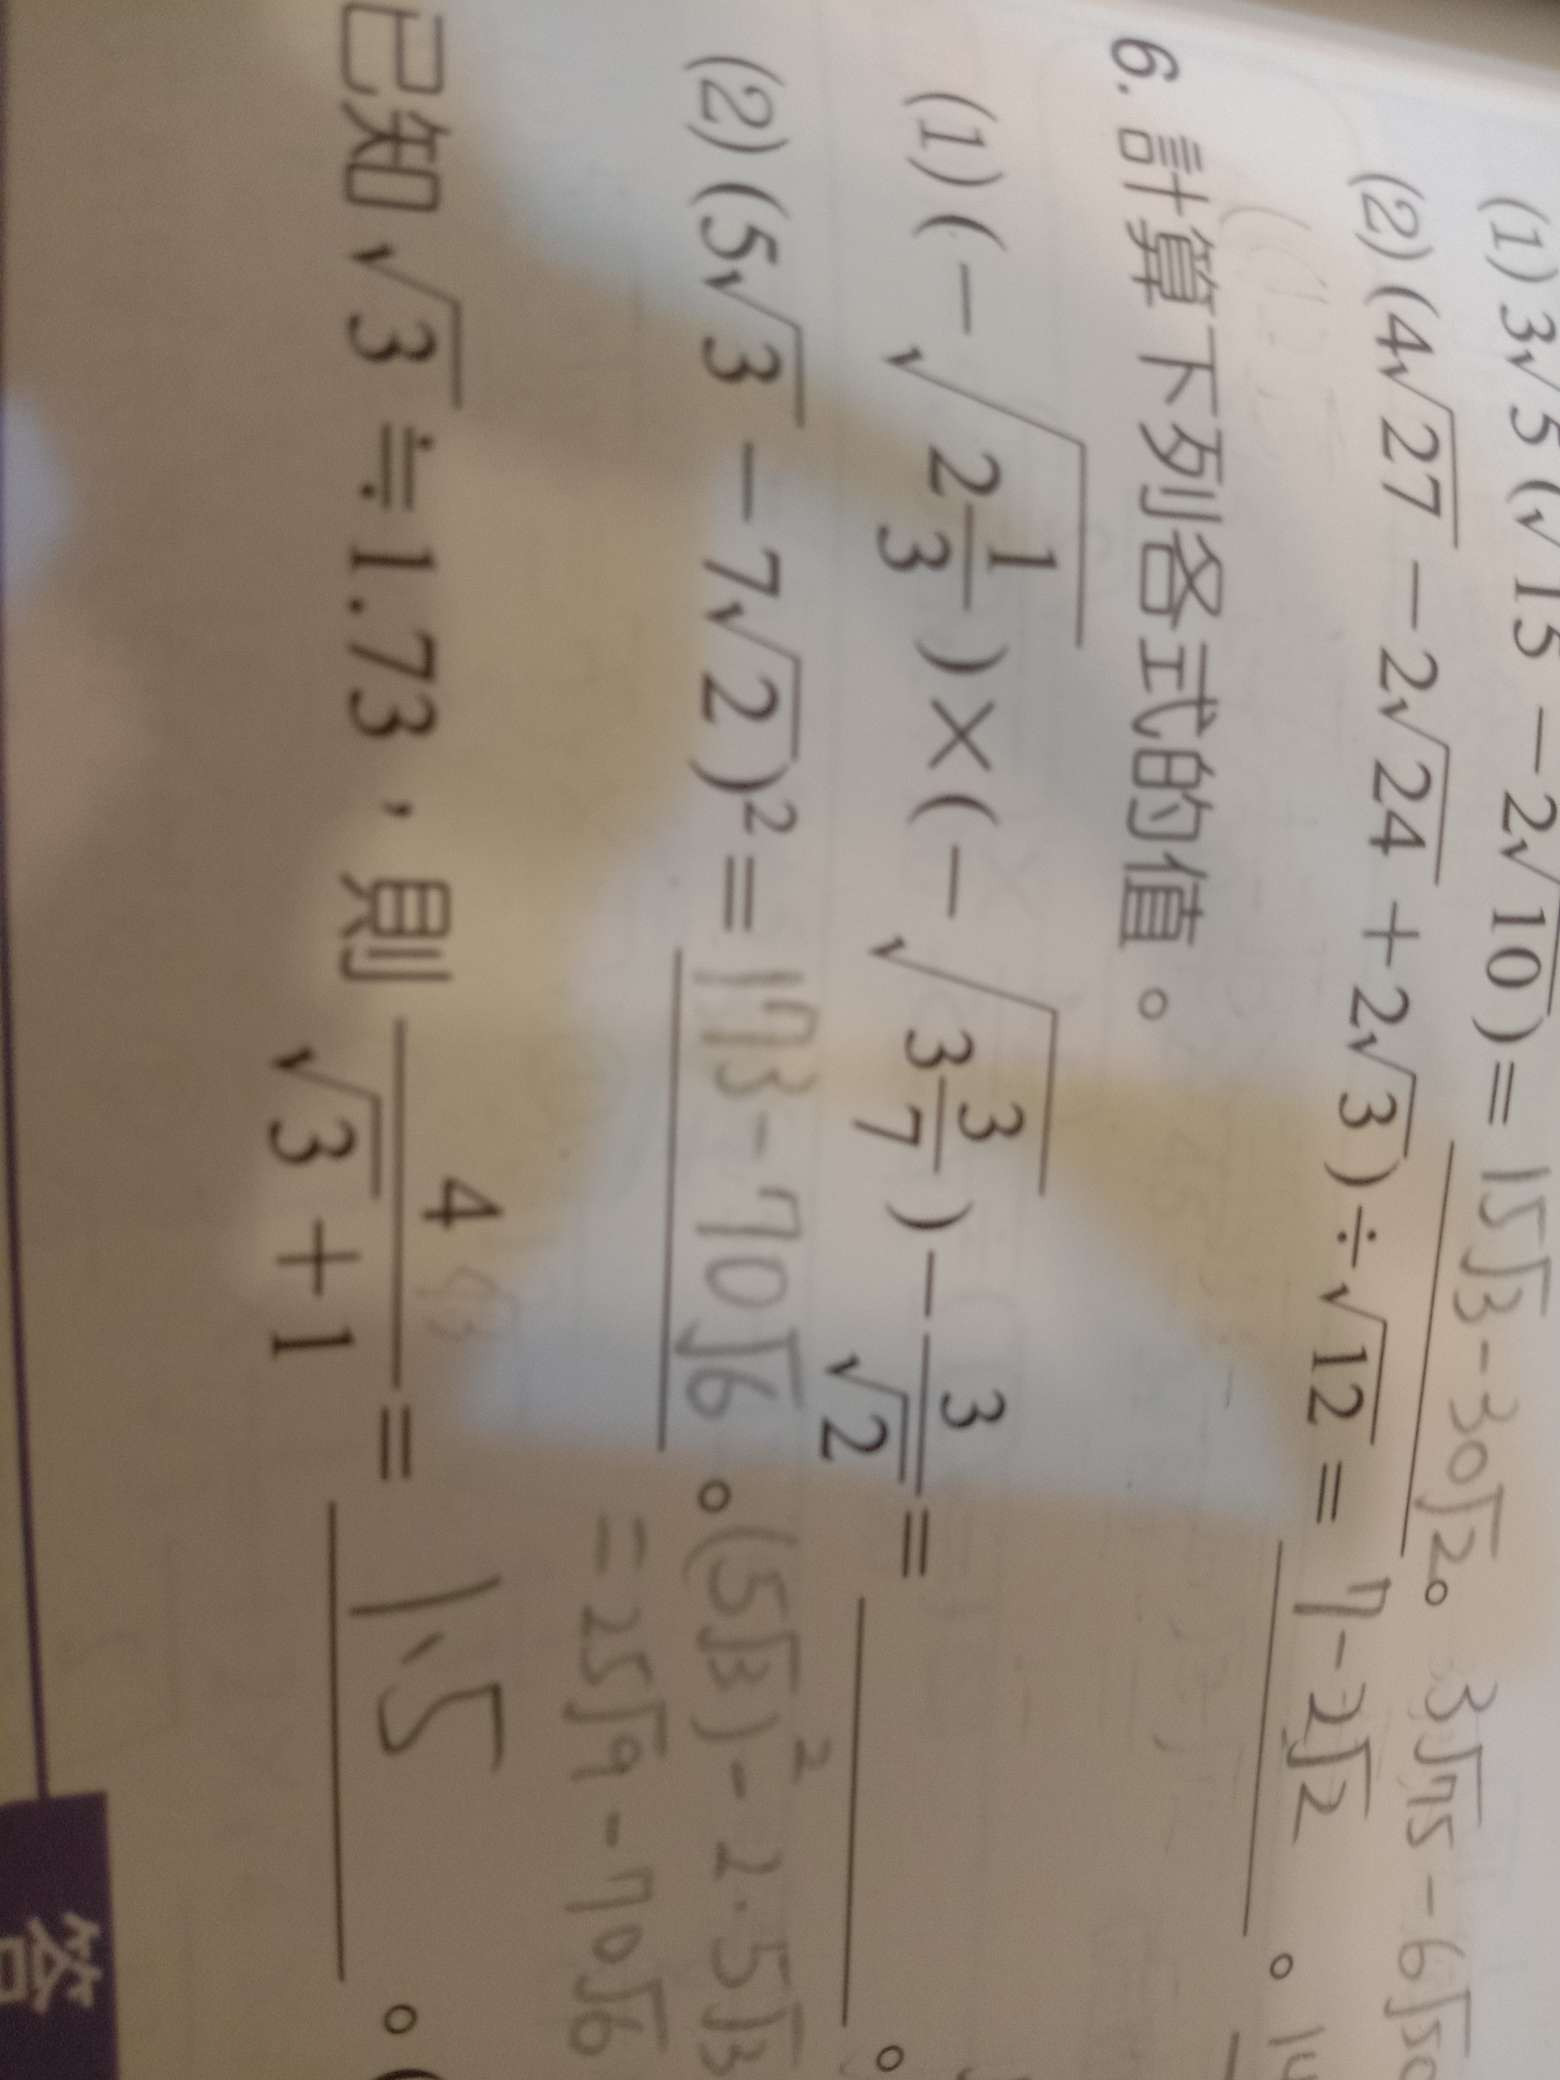 (1) 3√5(√15 − 2√10) = 15√3 - 30√2。 3√75 - 6√50
(2) (4√27 − 2√24 + 2√3) ÷ √12 = 7 - 2√2 。
6. 計算下列各式的值。
(1) (−√(2 1/3)) × (−√(3 3/7)) − 3/√2 = 。
(2) (5√3 − 7√2)² = 173 - 70√6 。 (5√3)² - 2·5√3
= 25√9 - 70√6
已知 √3 ≒ 1.73,則 4/(√3 + 1) = 1.5 。(
答